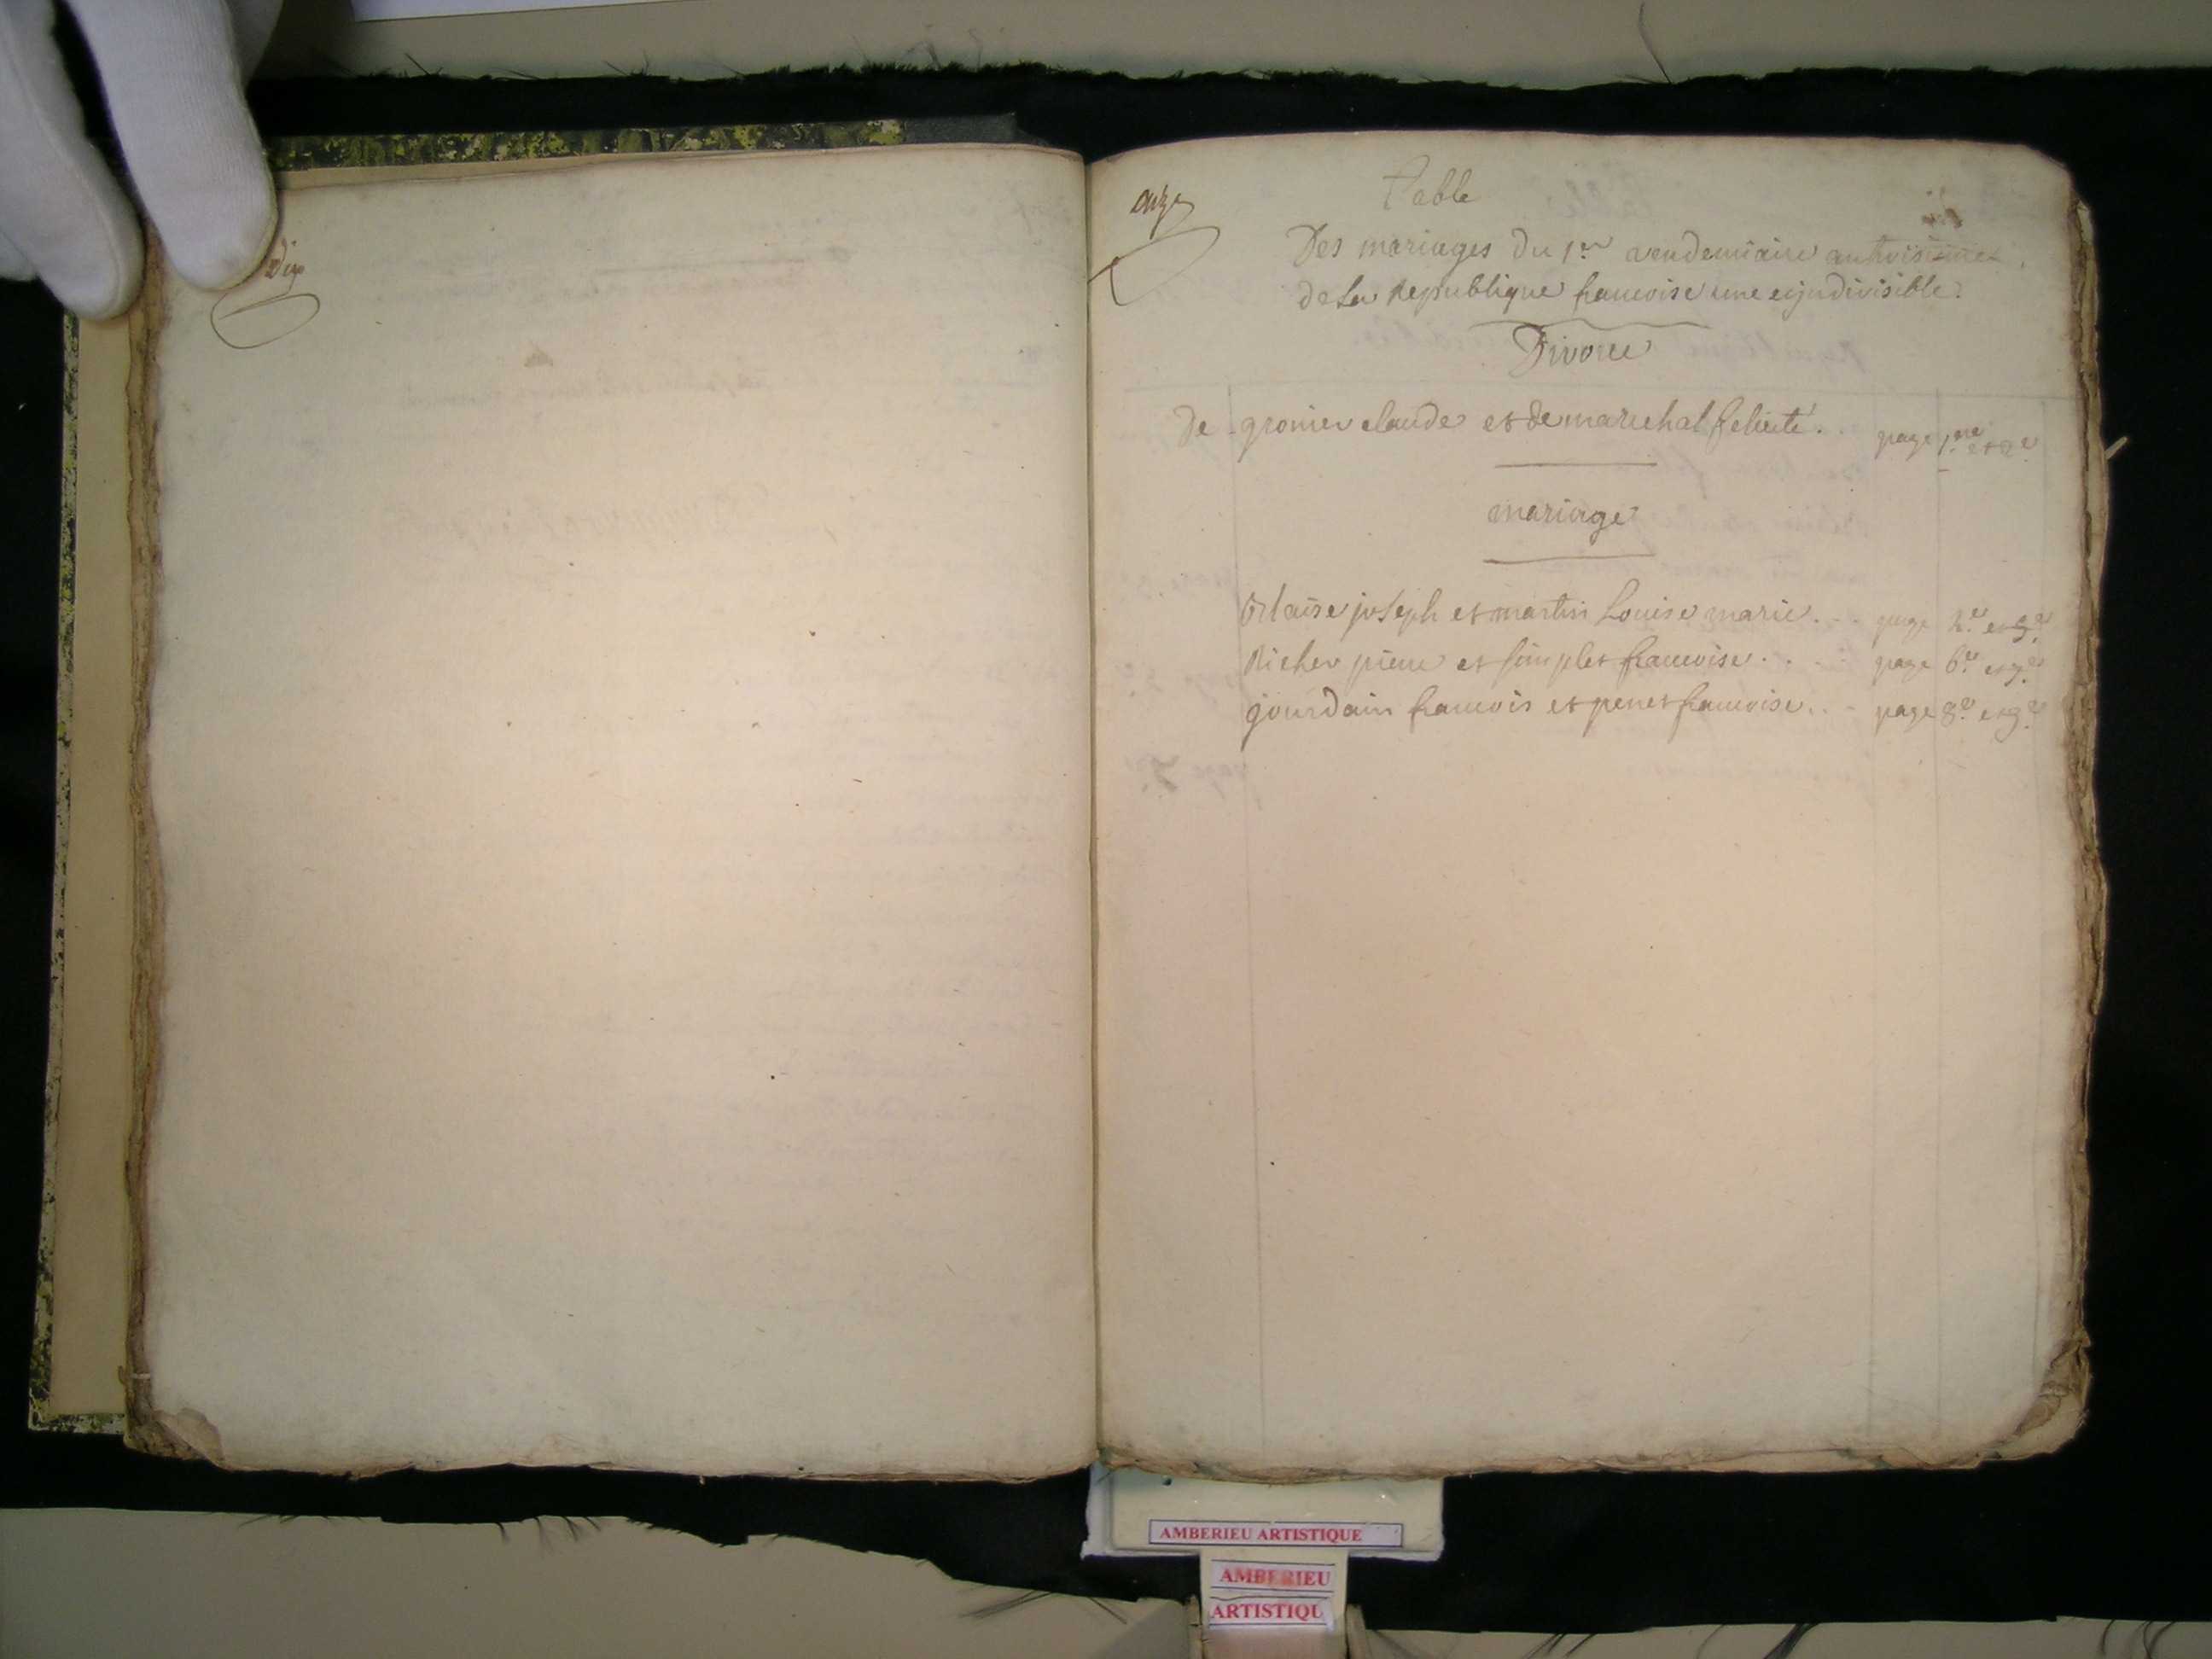 Dix
onze
Table
Des mariages Du 1er vendemiaire an troisieme
de La Republique francoise une et indivisible.
Divorce
De gronier claude et de marechal felicité. page 1ere et 2e
mariage
joseph et martin Louise marie. page 4e et 5e
Richer pierre et simplet francoise. page 6e et 7e
jourdain francois et penet francoise. page 8e et 9e
AMBERIEU ARTISTIQUE
AMBERIEU
ARTISTIQU